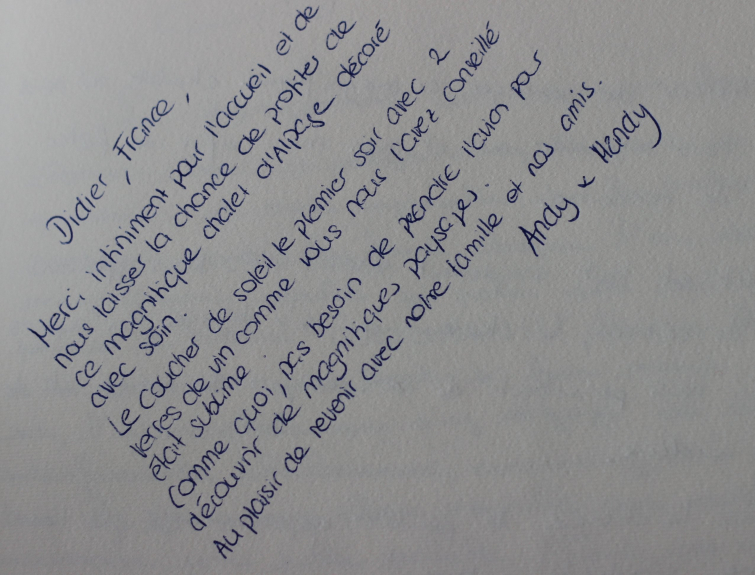 Didier, France,
Merci infiniment pour l'accueil et de
nous laisser la chance de profiter de
ce magnifique chalet d'Alpage décoré
avec soin.
Le coucher de soleil le premier soir avec 2
verres de vin comme vous nous l'avez conseillé
était sublime.
Comme quoi, pas besoin de prendre l'avion pour
découvrir de magnifiques paysages.
Au plaisir de revenir avec notre famille et nos amis.
Andy & Mandy